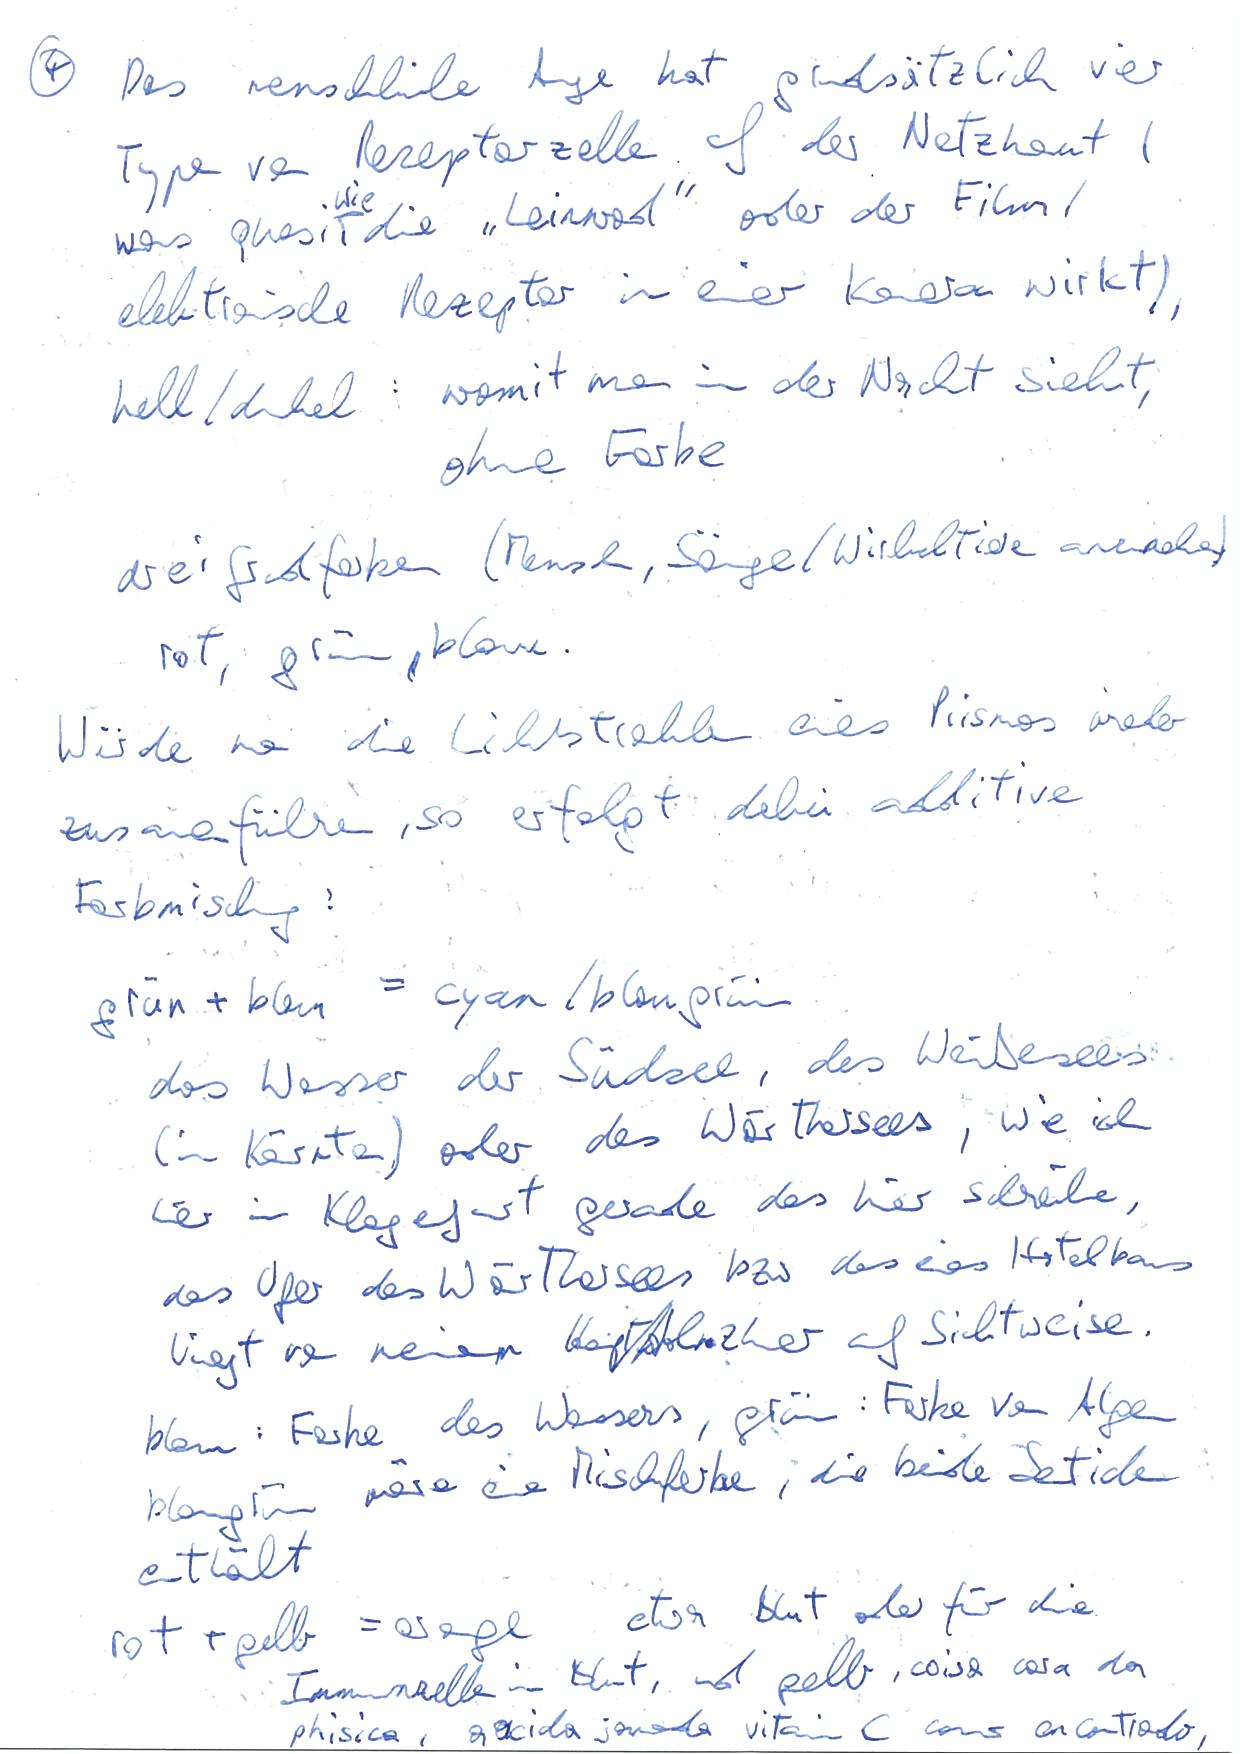 ④ Das menschliche Auge hat grundsätzlich vier
Typen von Rezeptorzellen auf der Netzhaut (
was quasi wie die „Leinwand" oder der Film/
elektronische Rezeptor in einer Kamera wirkt),
hell/dunkel: womit man in der Nacht sieht,
ohne Farbe
drei Grundfarben (Mensch, Säuge/Wirbeltiere
rot, grün, blau.
Würde man die Lichtstrahlen eines Prismas wieder
zusammenführen, so erfolgt dabei additive
Farbmischung:
grün + blau = cyan/blaugrün
das Wasser der Südsee, des Weißensees
(in Kärnten) oder des Wörthersees, wie ich
hier in Klagenfurt gerade das hier schreibe,
das Ufer des Wörthersees bzw das eines Hotelbaus
liegt von meinem auf Sichtweise.
blau: Farbe des Wassers, grün: Farbe von Algen
blaugrün wäre eine Mischfarbe, die beide
enthält
rot + gelb = orange etwa Blut oder für die
Immunzellen im Blut, und gelb, coisa cara da
phisica, vitamin C como encontrado,